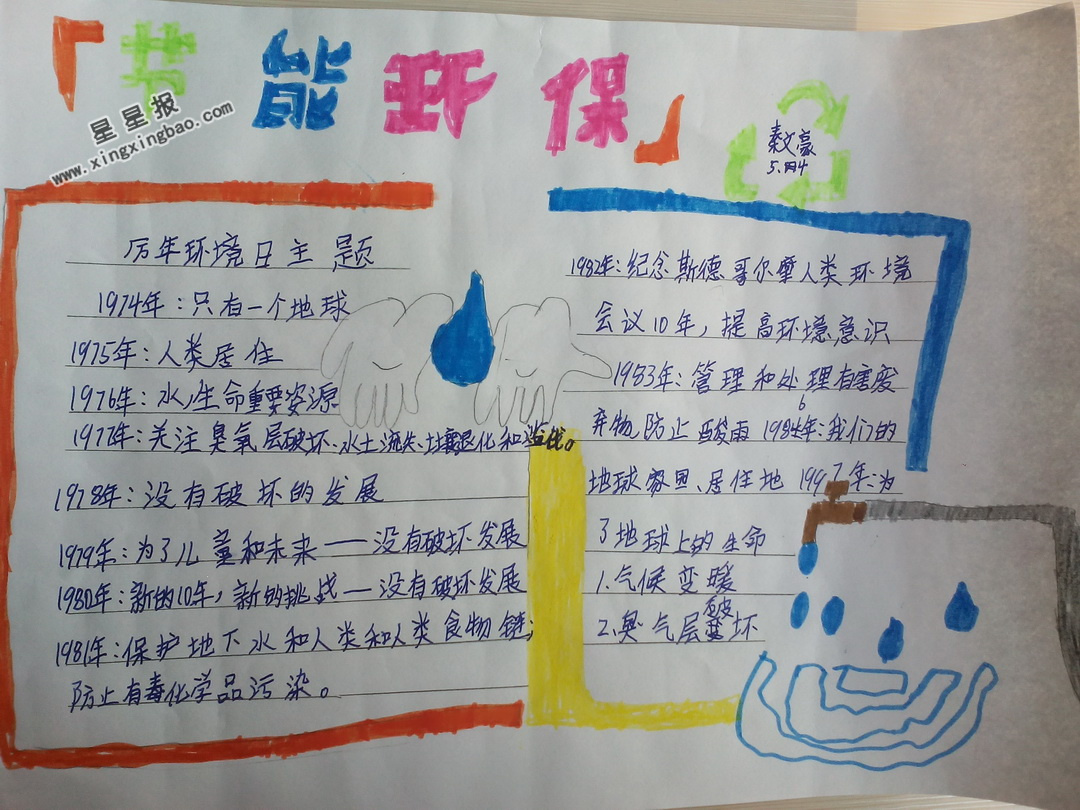 「节能环保」
星星报
www.xingxingbao.com
秦文豪
5.四4
历年环境日主题
1974年:只有一个地球
1975年:人类居住
1976年:水,生命重要姿源
1977年:关注臭氧层破坏、水土流失、土壤退化和滥伐。
1978年:没有破坏的发展
1979年:为了儿童和未来——没有破坏发展
1980年:新的10年,新的挑战—没有破坏发展
1981年:保护地下水和人类和人类食物链;
防止有毒化学品污染。
1982年:纪念斯德哥尔摩人类环境
会议10年,提高环境意识
1983年:管理和处理有害废
弃物,防止酸雨 1986年:我们的
地球家园、居住地 1997年:为
了地球上的生命
1.气候变暖
2.臭气层破坏